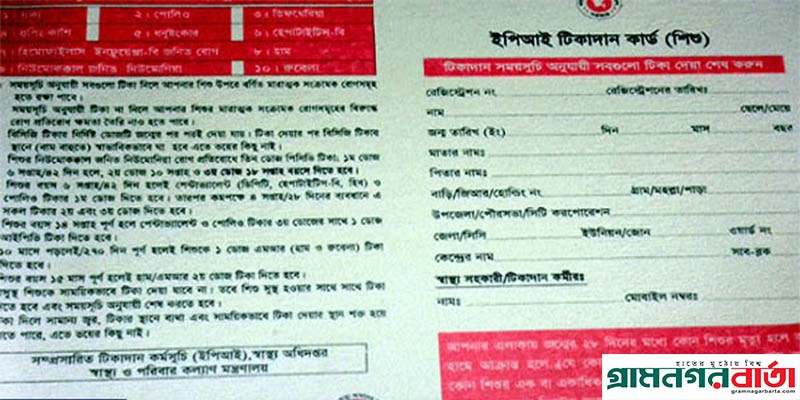 ২। পোলিও
৩। ডিফথেরিয়া
হুপিং কাশি
৫। ধনুষ্টংকার
৬। হেপাটাইটিস-বি
হিমোফাইলাস ইনফ্লুয়েঞ্জা-বি জনিত রোগ
৮। হাম
নিউমোকক্কাল জনিত নিউমোনিয়া
১০। রুবেলা
সময়সূচি অনুযায়ী সবগুলো টিকা নিলে আপনার শিশু উপরে বর্ণিত মারাত্মক সংক্রামক রোগসমূহ
হতে রক্ষা পাবে।
সময়সূচি অনুযায়ী টিকা না নিলে আপনার শিশুর মারাত্মক সংক্রামক রোগসমূহের বিরুদ্ধে
রোগ প্রতিরোধ ক্ষমতা তৈরি নাও হতে পারে।
বিসিজি টিকার নির্দিষ্ট ডোজটি জন্মের পর পরই দেয়া যায়। টিকা দেয়ার পর বিসিজি টিকার
স্থানে (বাম বাহুতে) স্বাভাবিকভাবে ঘা হবে এতে ভয়ের কিছু নাই।
শিশুর নিউমোকক্কাল জনিত নিউমোনিয়া রোগ প্রতিরোধে তিন ডোজ পিসিভি টিকা: ১ম ডোজ
৬ সপ্তাহ/৪২ দিন হলে, ২য় ডোজ ১০ সপ্তাহ ও ৩য় ডোজ ১৮ সপ্তাহ বয়সে দিতে হবে।
শিশুর বয়স ৬ সপ্তাহ/৪২ দিন হলেই পেন্টাভ্যালেন্ট (ডিপিটি, হেপাটাইটিস-বি, হিব) ও
পোলিও টিকার ১ম ডোজ দিতে হবে। তারপর কমপক্ষে ৪ সপ্তাহ/২৮ দিনের ব্যবধানে এ
সকল টিকার ২য় এবং ৩য় ডোজ দিতে হবে।
শিশুর বয়স ১৪ সপ্তাহ পূর্ণ হলে পেন্টাভ্যালেন্ট ও পোলিও টিকার ৩য় ডোজের সাথে ১ ডোজ
আইপিভি টিকা দিতে হবে।
১০ মাসে পড়লেই/২৭০ দিন পূর্ণ হলেই শিশুকে ১ ডোজ এমআর (হাম ও রুবেলা) টিকা
দিতে হবে।
শিশুর বয়স ১৫ মাস পূর্ণ হলেই হাম/এমআর ২য় ডোজ টিকা দিতে হবে।
শিশুকে সাময়িকভাবে টিকা দেয়া যাবে না। তবে শিশু সুস্থ হওয়ার সাথে সাথে টিকা
হবে এবং সময়সূচি অনুযায়ী শেষ করতে হবে।
টিকা দিলে সামান্য জ্বর, টিকার স্থানে ব্যথা এবং সাময়িকভাবে টিকা দেয়ার স্থান শক্ত হয়ে
পারে, এতে ভয়ের কিছু নাই।
সম্প্রসারিত টিকাদান কর্মসূচি (ইপিআই), স্বাস্থ্য অধিদপ্তর
স্বাস্থ্য ও পরিবার কল্যাণ মন্ত্রণালয়
ইপিআই টিকাদান কার্ড (শিশু)
টিকাদান সময়সূচি অনুযায়ী সবগুলো টিকা দেয়া শেষ করুন
রেজিস্ট্রেশন নং রেজিস্ট্রেশনের তারিখঃ
নাম ছেলে/মেয়ে
জন্ম তারিখ (ইং) দিন মাস বছর
মাতার নামঃ
পিতার নামঃ
বাড়ি/জিআর/হোল্ডিং নং গ্রাম/মহল্লা/পাড়া
উপজেলা/পৌরসভা/সিটি করপোরেশন
জেলা/সিসি ইউনিয়ন/জোন ওয়ার্ড নং
কেন্দ্রের নাম সাব-ব্লক
স্বাস্থ্য সহকারী/টিকাদান কর্মীরঃ
নামঃ মোবাইল নম্বরঃ
আপনার এলাকায় জন্মের ২৮ দিনের মধ্যে কোন শিশুর মৃত্যু হলে
হামে আক্রান্ত হলে (যে কো
কোন শিশুর এক বা একাধিক
হাতের মুঠোয় বিশ্ব
গ্রামনগরবার্তা
gramnagarbarta.com